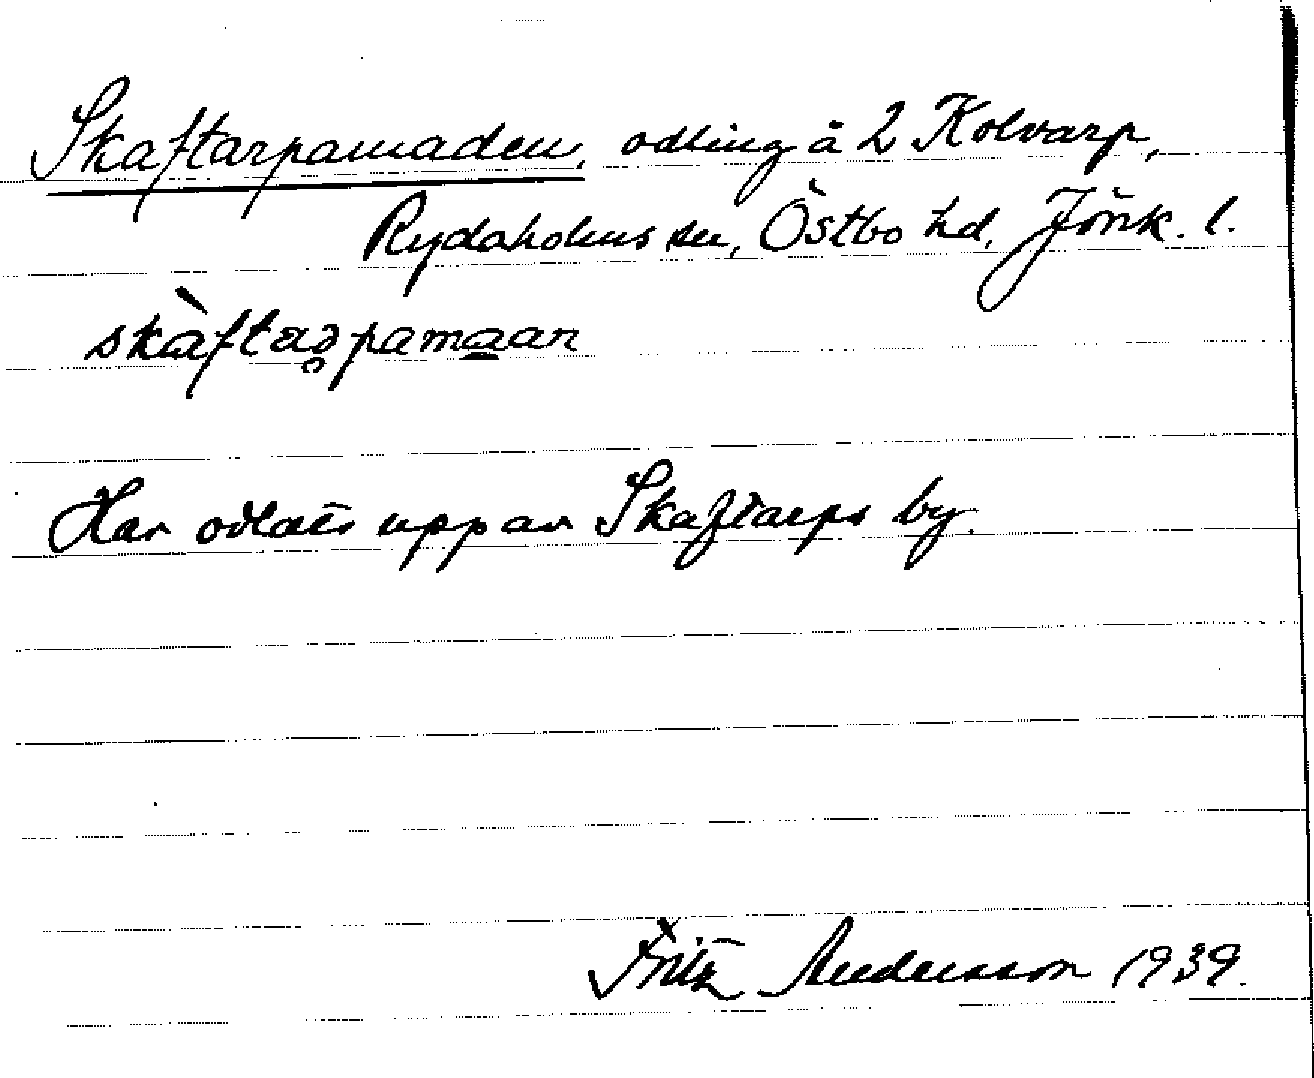 Skaftarpamaden, odling å 2 Kolvarp,
Rydaholms sn, Östbo hd, Jönk. l.
skàftaƨ̥pama̲an
Har odlats upp av Skaftarps by.
Fritz Andersson 1939.